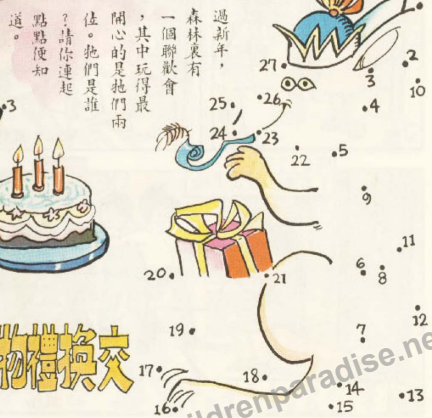 過新年，
森林裏有
一個聯歡會
，其中玩得最
開心的是牠們兩
位。牠們是誰
？請你連起
點點便知
道。
27
3
2
10
3
25
26
4
24
23
22
5
9
11
20
21
6
8
19
7
12
物禮換交
17
18
14
13
16
15
ildrenparadise.ne